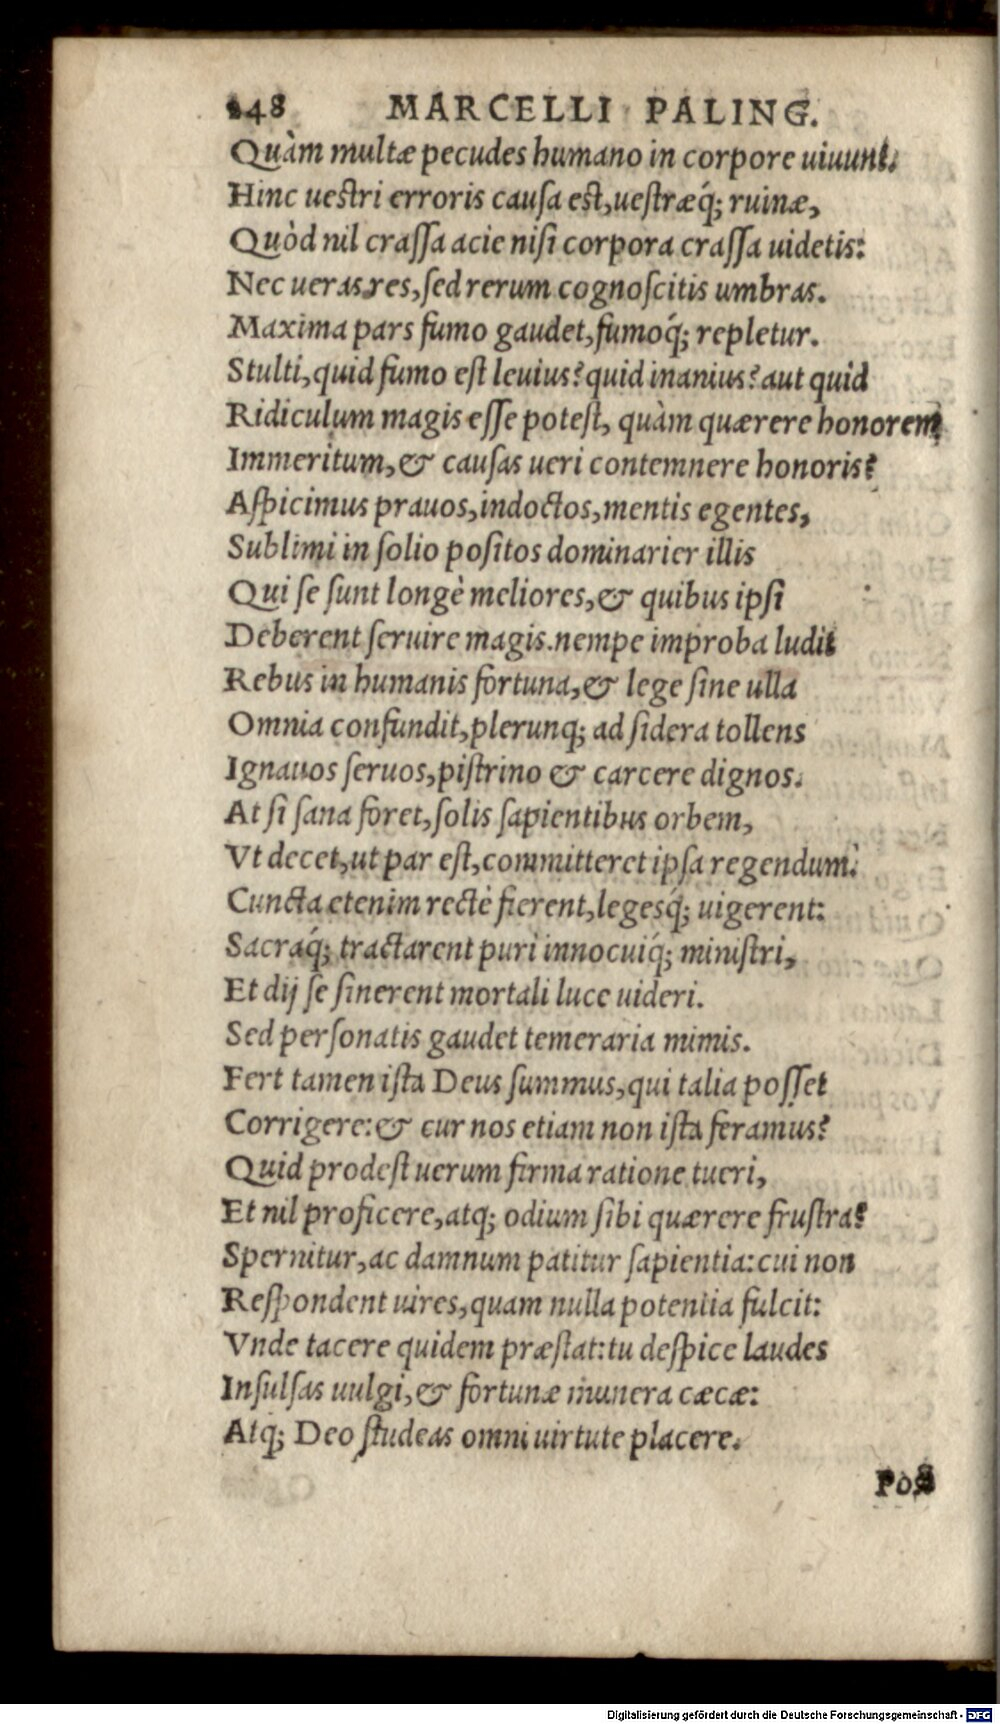 248 MARCELLI PALING.
Quàm multæ pecudes humano in corpore uiuunt.
Hinc uestri erroris causa est,uestræq́; ruinæ,
Quòd nil crassa acie nisi corpora crassa uidetis:
Nec ueras res,sed rerum cognoscitis umbras.
Maxima pars fumo gaudet,fumoq́; repletur.
Stulti,quid fumo est leuius? quid inanius? aut quid
Ridiculum magis esse potest, quàm quærere honorem
Immeritum,& causas ueri contemnere honoris?
Aspicimus prauos,indoctos,mentis egentes,
Sublimi in solio positos dominarier illis
Qui se sunt longè meliores,& quibus ipsi
Deberent seruire magis.nempe improba ludit
Rebus in humanis fortuna,& lege sine ulla
Omnia confundit,plerunq; ad sidera tollens
Ignauos seruos,pistrino & carcere dignos.
At si sana foret,solis sapientibus orbem,
Vt decet,ut par est,committeret ipsa regendum:
Cuncta etenim rectè fierent,legesq́; uigerent:
Sacraq́; tractarent puri innocuiq́; ministri,
Et dij se sinerent mortali luce uideri.
Sed personatis gaudet temeraria mimis.
Fert tamen ista Deus summus,qui talia posset
Corrigere:& cur nos etiam non ista feramus?
Quid prodest uerum firma ratione tueri,
Et nil proficere,atq; odium sibi quærere frustra?
Spernitur,ac damnum patitur sapientia:cui non
Respondent uires,quam nulla potentia fulcit:
Vnde tacere quidem præstat:tu despice laudes
Insulsas uulgi,& fortunæ munera cæcæ:
Atq; Deo studeas omni uirtute placere.
Digitalisierung gefördert durch die Deutsche Forschungsgemeinschaft - DFG